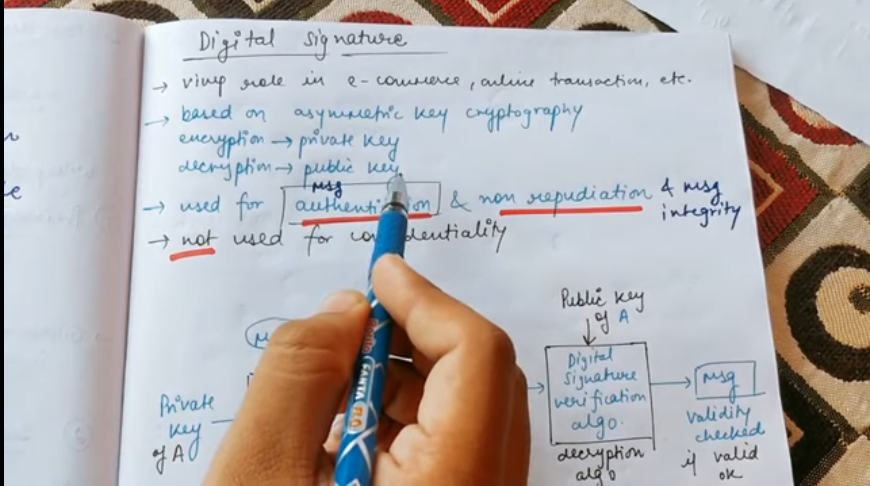 Digital Signature
→ vimp role in e-commerce, online transaction, etc.
→ based on asymmetric key cryptography
encryption → private key
decryption → public key
→ used for msg authentication & non repudiation & msg integrity
→ not used for confidentiality
Private
key
of A
Public key
of A
Digital
Signature
verification
algo.
decryption
algo
msg
validity
checked
if valid
ok